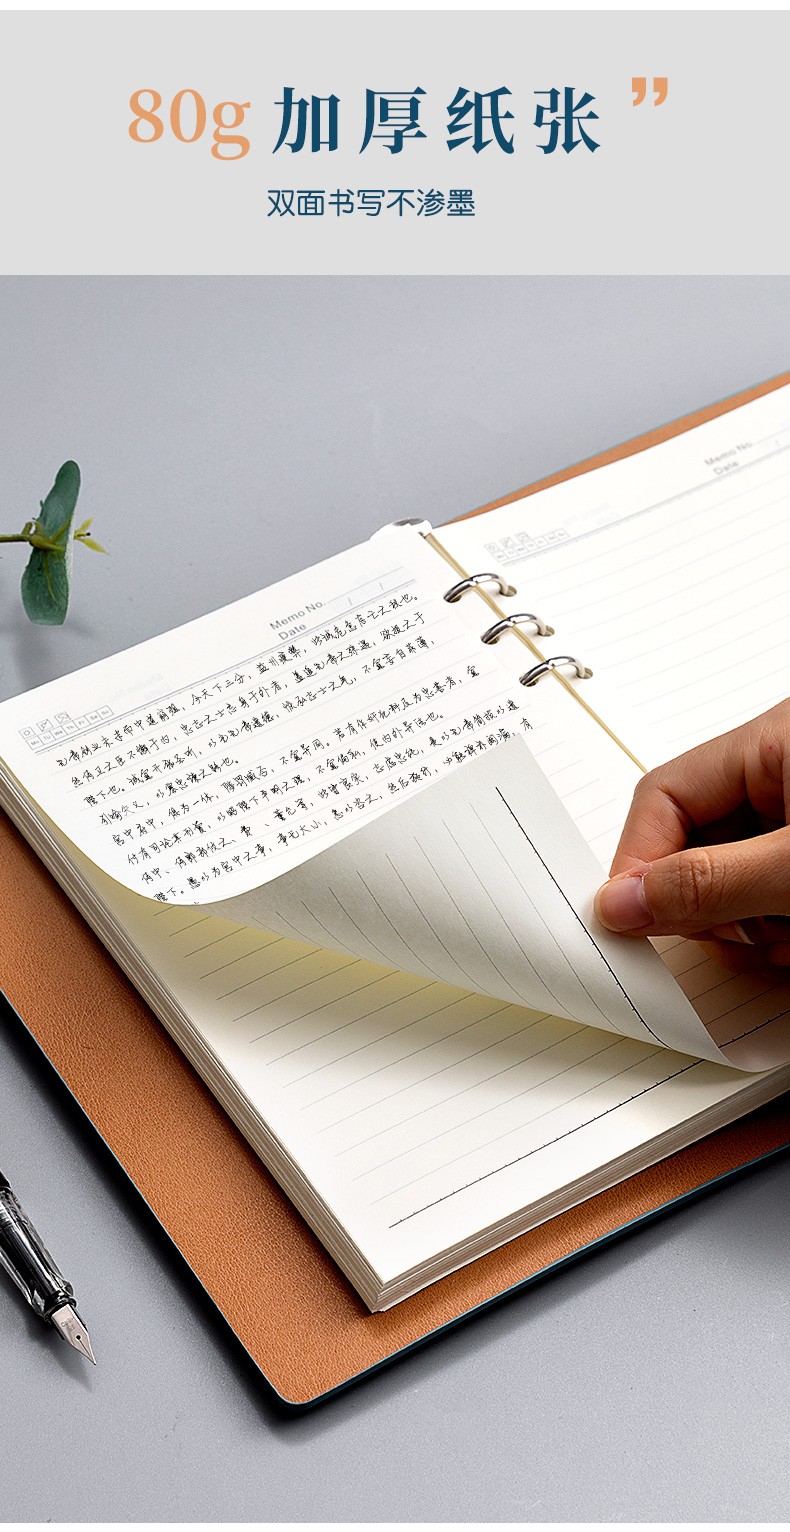 80g 加厚纸张 ”
双面书写不渗墨
Memo No.
Date
Mo Tu We Th Fr Sa Su
Memo No.
Date / /
Mo Tu We Th Fr Sa Su
先帝创业未半而中道崩殂，今天下三分，益州疲弊，此诚危急存亡之秋也。
然侍卫之臣不懈于内，忠志之士忘身于外者，盖追先帝之殊遇，欲报之于
陛下也。诚宜开张圣听，以光先帝遗德，恢弘志士之气，不宜妄自菲薄，
引喻失义，以塞忠谏之路也。
宫中府中，俱为一体，陟罚臧否，不宜异同。若有作奸犯科及为忠善者，宜
付有司论其刑赏，以昭陛下平明之理，不宜偏私，使内外异法也。
侍中、侍郎郭攸之、费、董允等，此皆良实，志虑忠纯，是以先帝简拔以遗
陛下。愚以为宫中之事，事无大小，悉以咨之，然后施行，必能裨补阙漏，有